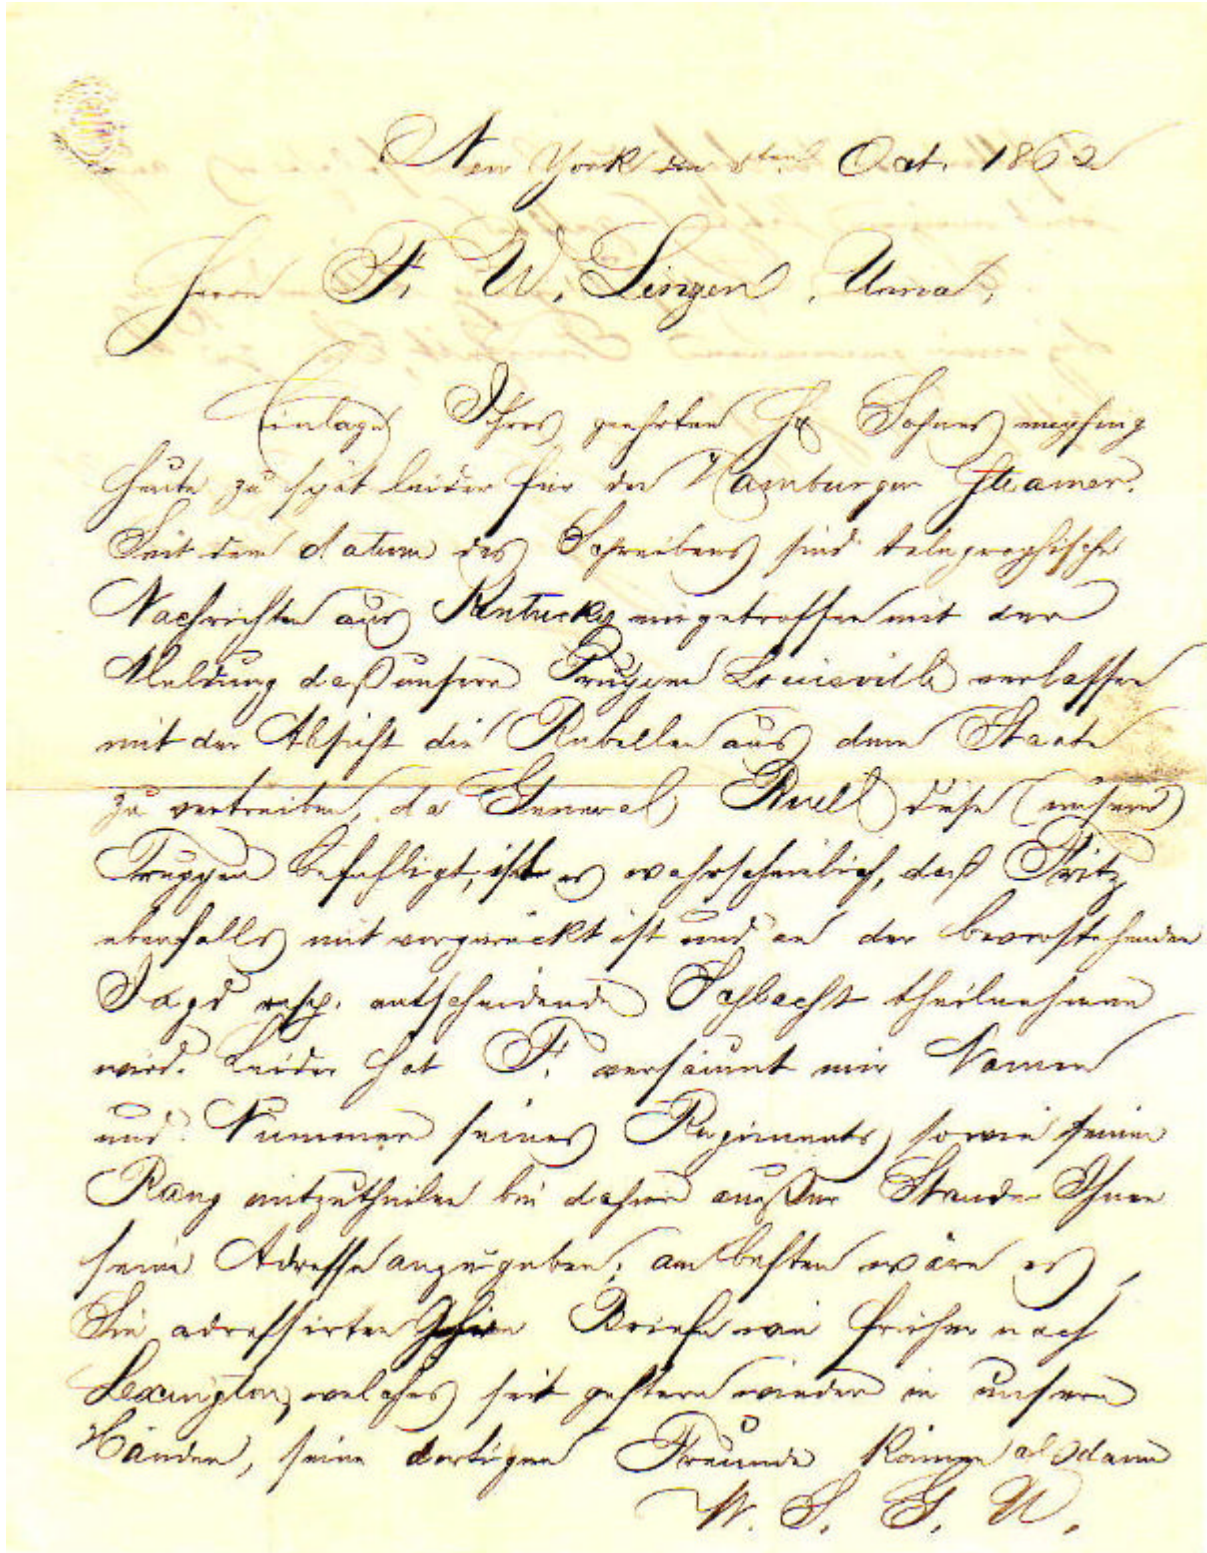 New York den 8ten Oct. 1862
Herrn F. W. Lingen, Unna,
Einlage Ihres geehrten Hr Sohnes empfing
heute zu spät leider für den Hamburger Steamer.
Seit dem datum des Schreibens sind telegraphische
Nachrichten aus Kentucky eingetroffen mit der
Meldung daß unsere Truppen Louisville verlassen
mit der Absicht die Rebellen aus dem Staate
zu vertreiben, da General Buell diese (unsere)
Truppen befehligt, ist es wahrscheinlich, daß Fritz
ebenfalls mit vorgerückt ist und an der bevorstehenden
Jagd resp. entscheidende Schlacht theilnehmen
wird. Leider hat F. versäumt mir Namen
und Nummer seines Regiments, sowie seinen
Rang mitzutheilen bin daher außer Stande Ihnen
seine Adresse anzugeben; am besten wäre es,
Sie adressirten Briefe wie früher nach
Lexington, welches seit gestern wieder in unseren
Händen, seine dortigen Freunde können alsdann
W. S. G. U.